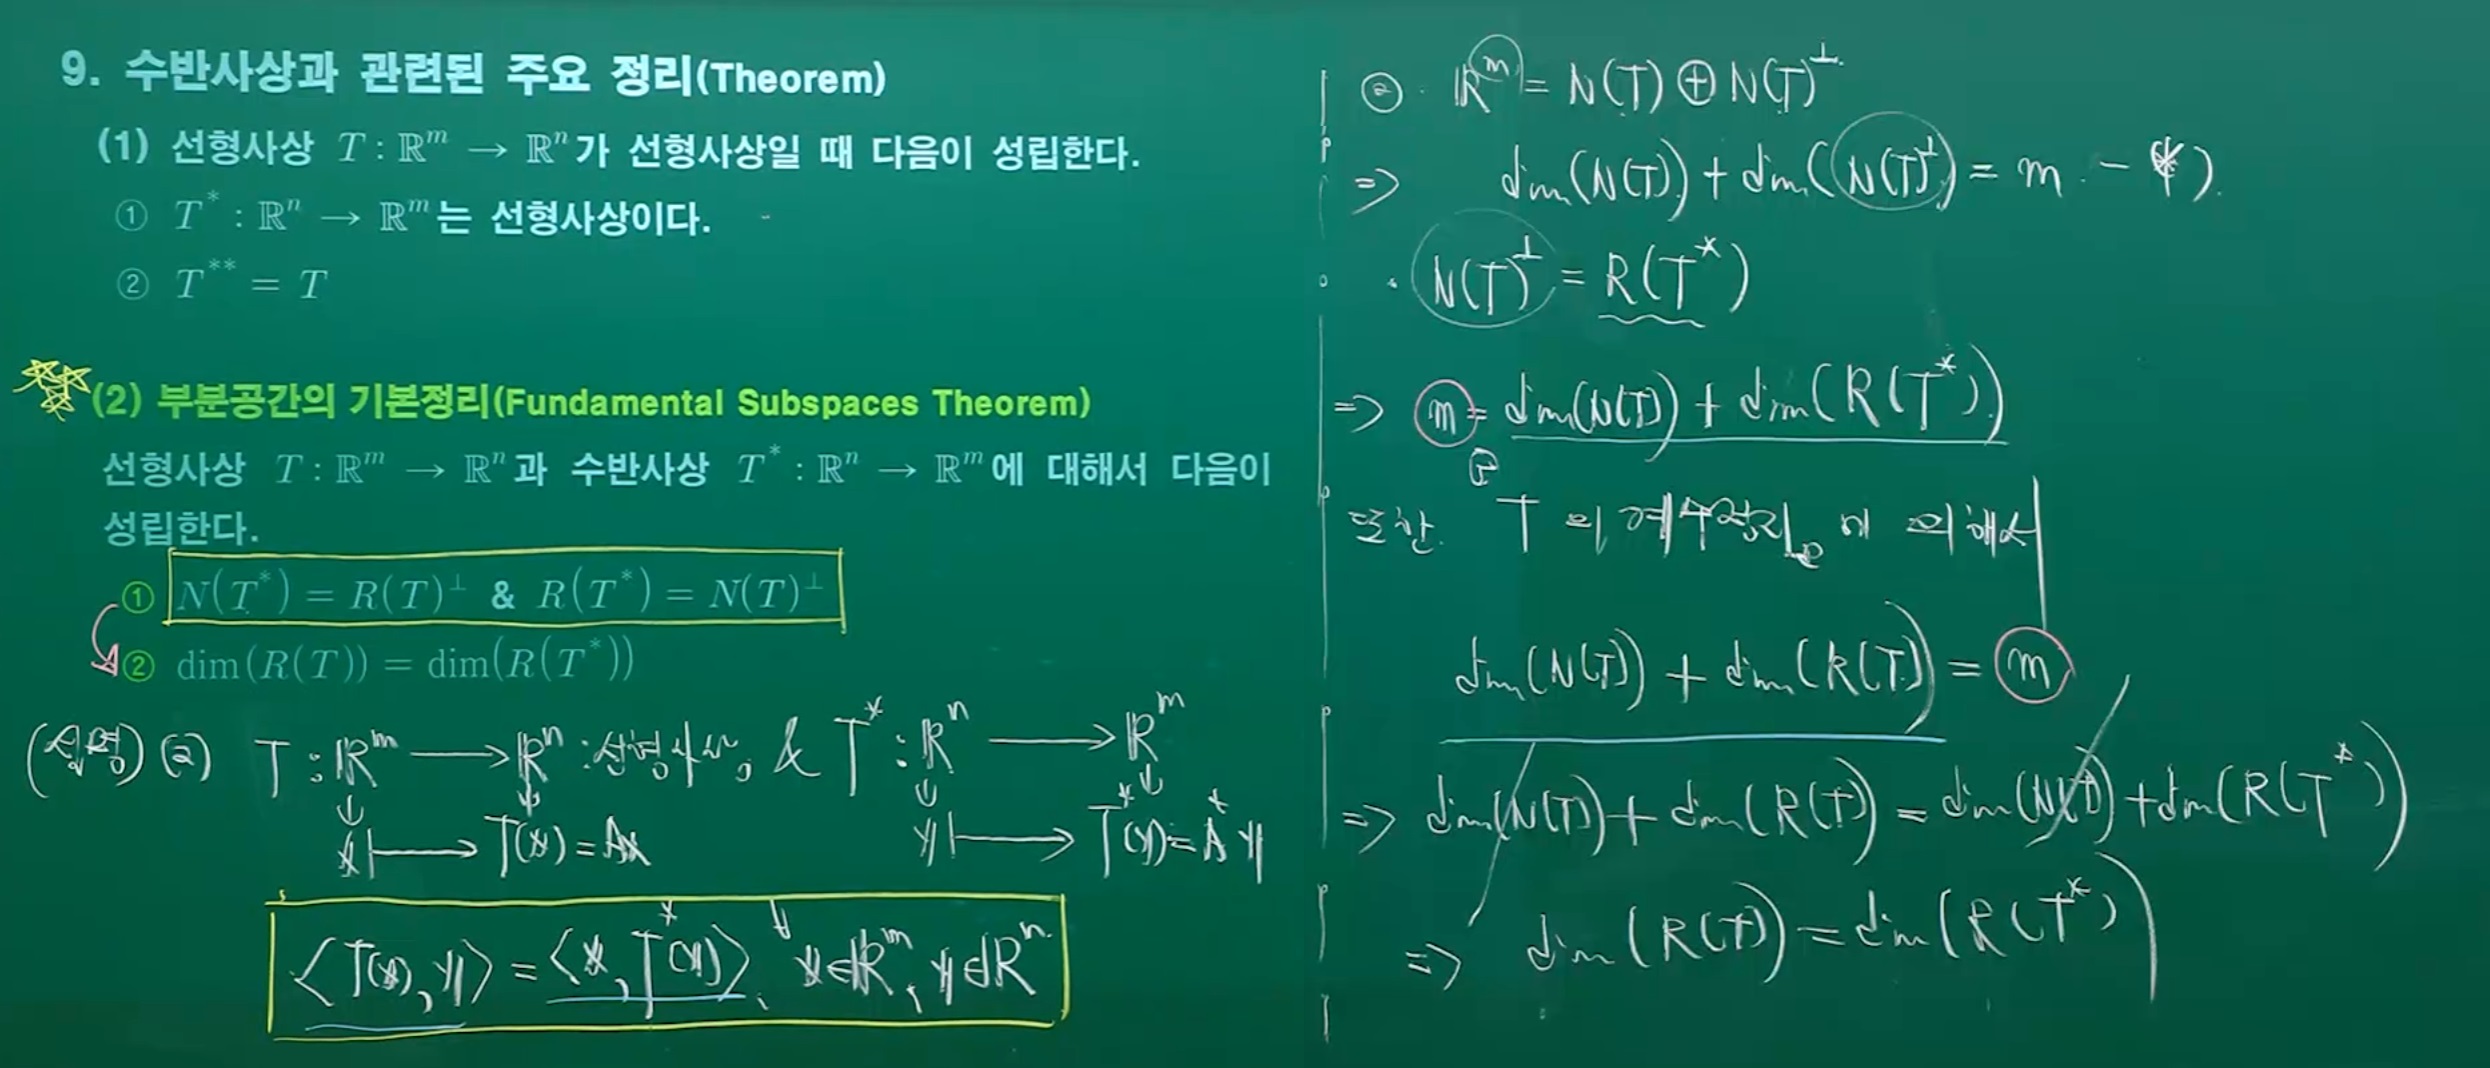 9. 수반사상과 관련된 주요 정리(Theorem)
(1) 선형사상 T : ℝ^m → ℝ^n가 선형사상일 때 다음이 성립한다.
① T^* : ℝ^n → ℝ^m는 선형사상이다.
② T^** = T
(2) 부분공간의 기본정리(Fundamental Subspaces Theorem)
선형사상 T : ℝ^m → ℝ^n과 수반사상 T^* : ℝ^n → ℝ^m에 대해서 다음이
성립한다.
① N(T^*) = R(T)^⊥ & R(T^*) = N(T)^⊥
② dim(R(T)) = dim(R(T^*))
(설명) (2) T : ℝ^m → ℝ^n : 선형사상, & T^* : ℝ^n → ℝ^m
x ↦ T(x) = Ax y ↦ T^*(y) = A^* y
⟨T(x), y⟩ = ⟨x, T^*(y)⟩, x∈ℝ^m, y∈ℝ^n
② ℝ^m = N(T) ⊕ N(T)^⊥
⇒ dim(N(T)) + dim(N(T)^⊥) = m
N(T)^⊥ = R(T^*)
⇒ m = dim(N(T)) + dim(R(T^*))
또한 T의 계수정리에 의해서
dim(N(T)) + dim(R(T)) = m
⇒ dim(N(T)) + dim(R(T)) = dim(N(T)) + dim(R(T^*))
⇒ dim(R(T)) = dim(R(T^*))